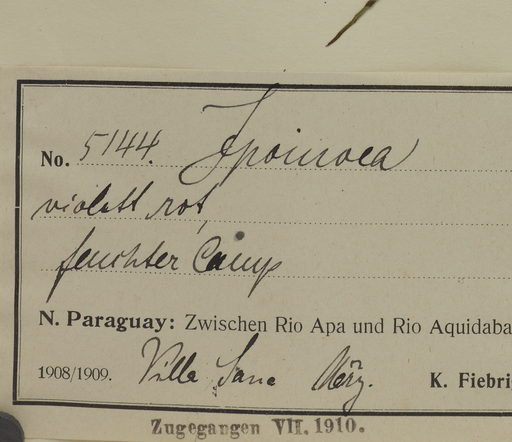 No. 5144. Ipomoea
violett rot,
feuchter Camp
N. Paraguay: Zwischen Rio Apa und Rio Aquidaba
1908/1909. Villa Sana März. K. Fiebri
Zugegangen VII. 1910.